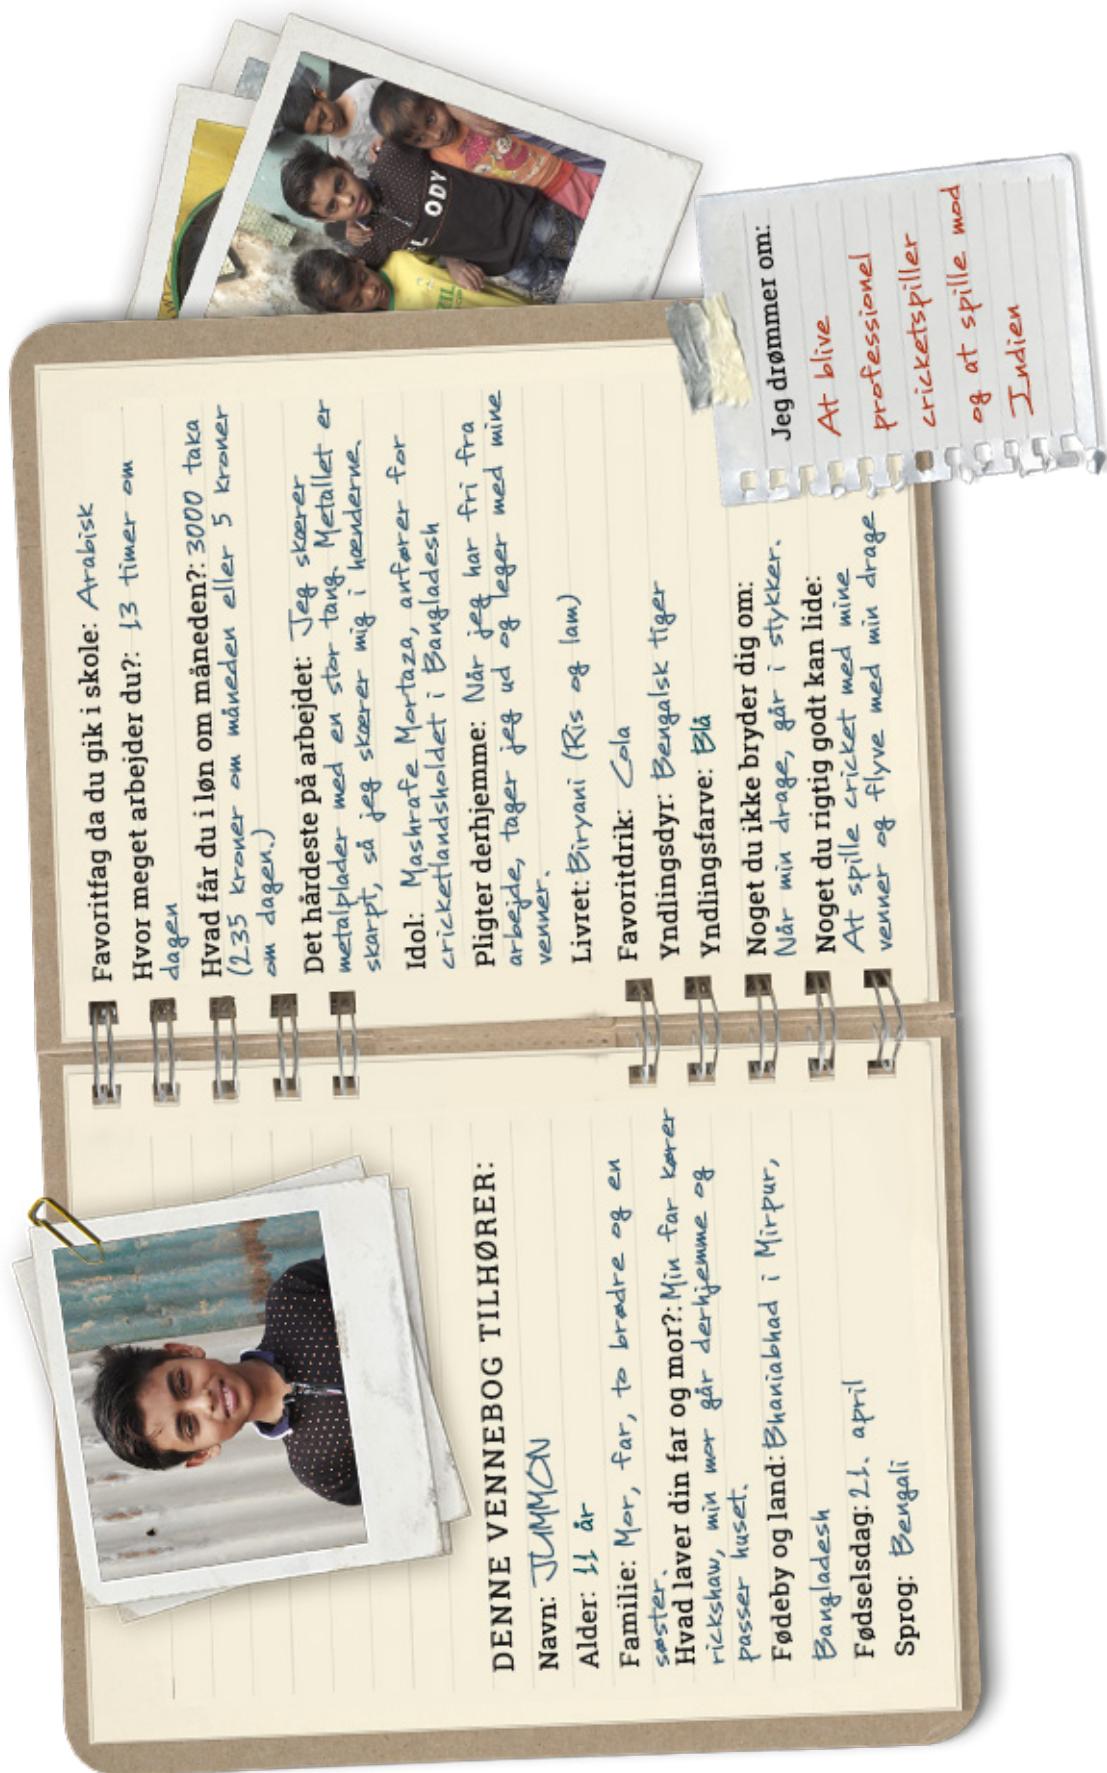 DENNE VENNEBOG TILHØRER:
Navn: JUMMON
Alder: 11 år
Familie: Mor, far, to brødre og en
søster.
Hvad laver din far og mor?: Min far kører
rickshaw, min mor går derhjemme og
passer huset.
Fødeby og land: Bhaniabhad i Mirpur,
Bangladesh
Fødselsdag: 21. april
Sprog: Bengali
Favoritfag da du gik i skole: Arabisk
Hvor meget arbejder du?: 13 timer om
dagen
Hvad får du i løn om måneden?: 3000 taka
(235 kroner om måneden eller 5 kroner
om dagen.)
Det hårdeste på arbejdet: Jeg skærer
metalplader med en stor tang. Metallet er
skarpt, så jeg skærer mig i hænderne.
Idol: Mashrafe Mortaza, anfører for
cricketlandsholdet i Bangladesh
Pligter derhjemme: Når jeg har fri fra
arbejde, tager jeg ud og leger med mine
venner.
Livret: Biryani (Ris og lam)
Favoritdrik: Cola
Yndlingsdyr: Bengalsk tiger
Yndlingsfarve: Blå
Noget du ikke bryder dig om:
Når min drage, går i stykker.
Noget du rigtig godt kan lide:
At spille cricket med mine
venner og flyve med min drage
Jeg drømmer om:
At blive
professionel
cricketspiller
og at spille mod
Indien
ODY